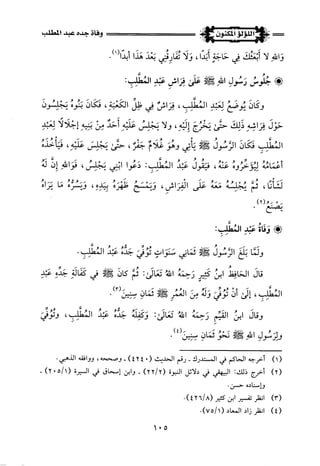 اللؤلؤ المكنون
وفاة جده عبد المطلب
وَاللهِ لَا أَبْعَثُكَ فِي حَاجَةٍ أَبَدًا، وَلَا تُفَارِقُنِي بَعْدَ هَذَا أَبَدًا(١).
جُلُوسُ رَسُولِ اللهِ ﷺ عَلَى فِرَاشِ عَبْدِ المُطَّلِبِ:
وَكَانَ يُوضَعُ لِعَبْدِ المُطَّلِبِ، فِرَاشٌ فِي ظِلِّ الكَعْبَةِ، فَكَانَ بَنُوهُ يَجْلِسُونَ
حَوْلَ فِرَاشِهِ ذَلِكَ حَتَّى يَخْرُجَ إِلَيْهِ، ولا يَجْلِسُ عَلَيْهِ أَحَدٌ مِنْ بَنِيهِ إِجْلَالًا لِعَبْدِ
المُطَّلِبِ فَكَانَ الرَّسُولُ ﷺ يَأْتِي وَهُوَ غُلَامٌ جَفْرٌ، حَتَّى يَجْلِسَ عَلَيْهِ، فَيَأْخُذُهُ
أَعْمَامُهُ لِيُؤَخِّرُوهُ عَنْهُ، فَيَقُولُ عَبْدُ المُطَّلِبِ: دَعُوا ابْنِي يَجْلِسُ، فَوَاللهِ إِنَّ لَهُ
لَشَأْنًا، ثُمَّ يُجْلِسُهُ مَعَهُ عَلَى الفِرَاشِ، وَيَمْسَحُ ظَهْرَهُ بِيَدِهِ، وَيَسُرُّهُ مَا يَرَاهُ
يَصْنَعُ(٢).
وَفَاةُ عَبْدِ المُطَّلِبِ:
وَلَمَّا بَلَغَ الرَّسُولُ ﷺ ثَمَانِي سَنَوَاتٍ تُوُفِّيَ جَدُّهُ عَبْدُ المُطَّلِبِ.
قَالَ الحَافِظُ ابنُ كَثِيرٍ رَحِمَهُ اللهُ تَعَالَى: ثُمَّ كَانَ ﷺ فِي كَفَالَةِ جَدِّهِ عَبْدِ
المُطَّلِبِ، إِلَى أَنْ تُوُفِّيَ وَلَهُ مِنَ العُمُرِ ﷺ ثَمَانِ سِنِينَ(٣).
وَقَالَ ابنُ القَيِّمِ رَحِمَهُ اللهُ تَعَالَى: وَكَفِلَهُ جَدُّهُ عَبْدُ المُطَّلِبِ، وتُوُفِّيَ
ولِرَسُولِ اللهِ ﷺ نَحْوُ ثَمَانِ سِنِينَ(٤).
(١) أخرجه الحاكم في المستدرك - رقم الحديث (٤٢٤٠) - وصححه، ووافقه الذهبي.
(٢) أخرج ذلك: البيهقي في دلائل النبوة (٢٢/٢) - وابن إسحاق في السيرة (٢٠٥/١) -
وإسناده حسن.
(٣) انظر تفسير ابن كثير (٤٢٦/٨).
(٤) انظر زاد المعاد (٧٥/١).
١٠٥